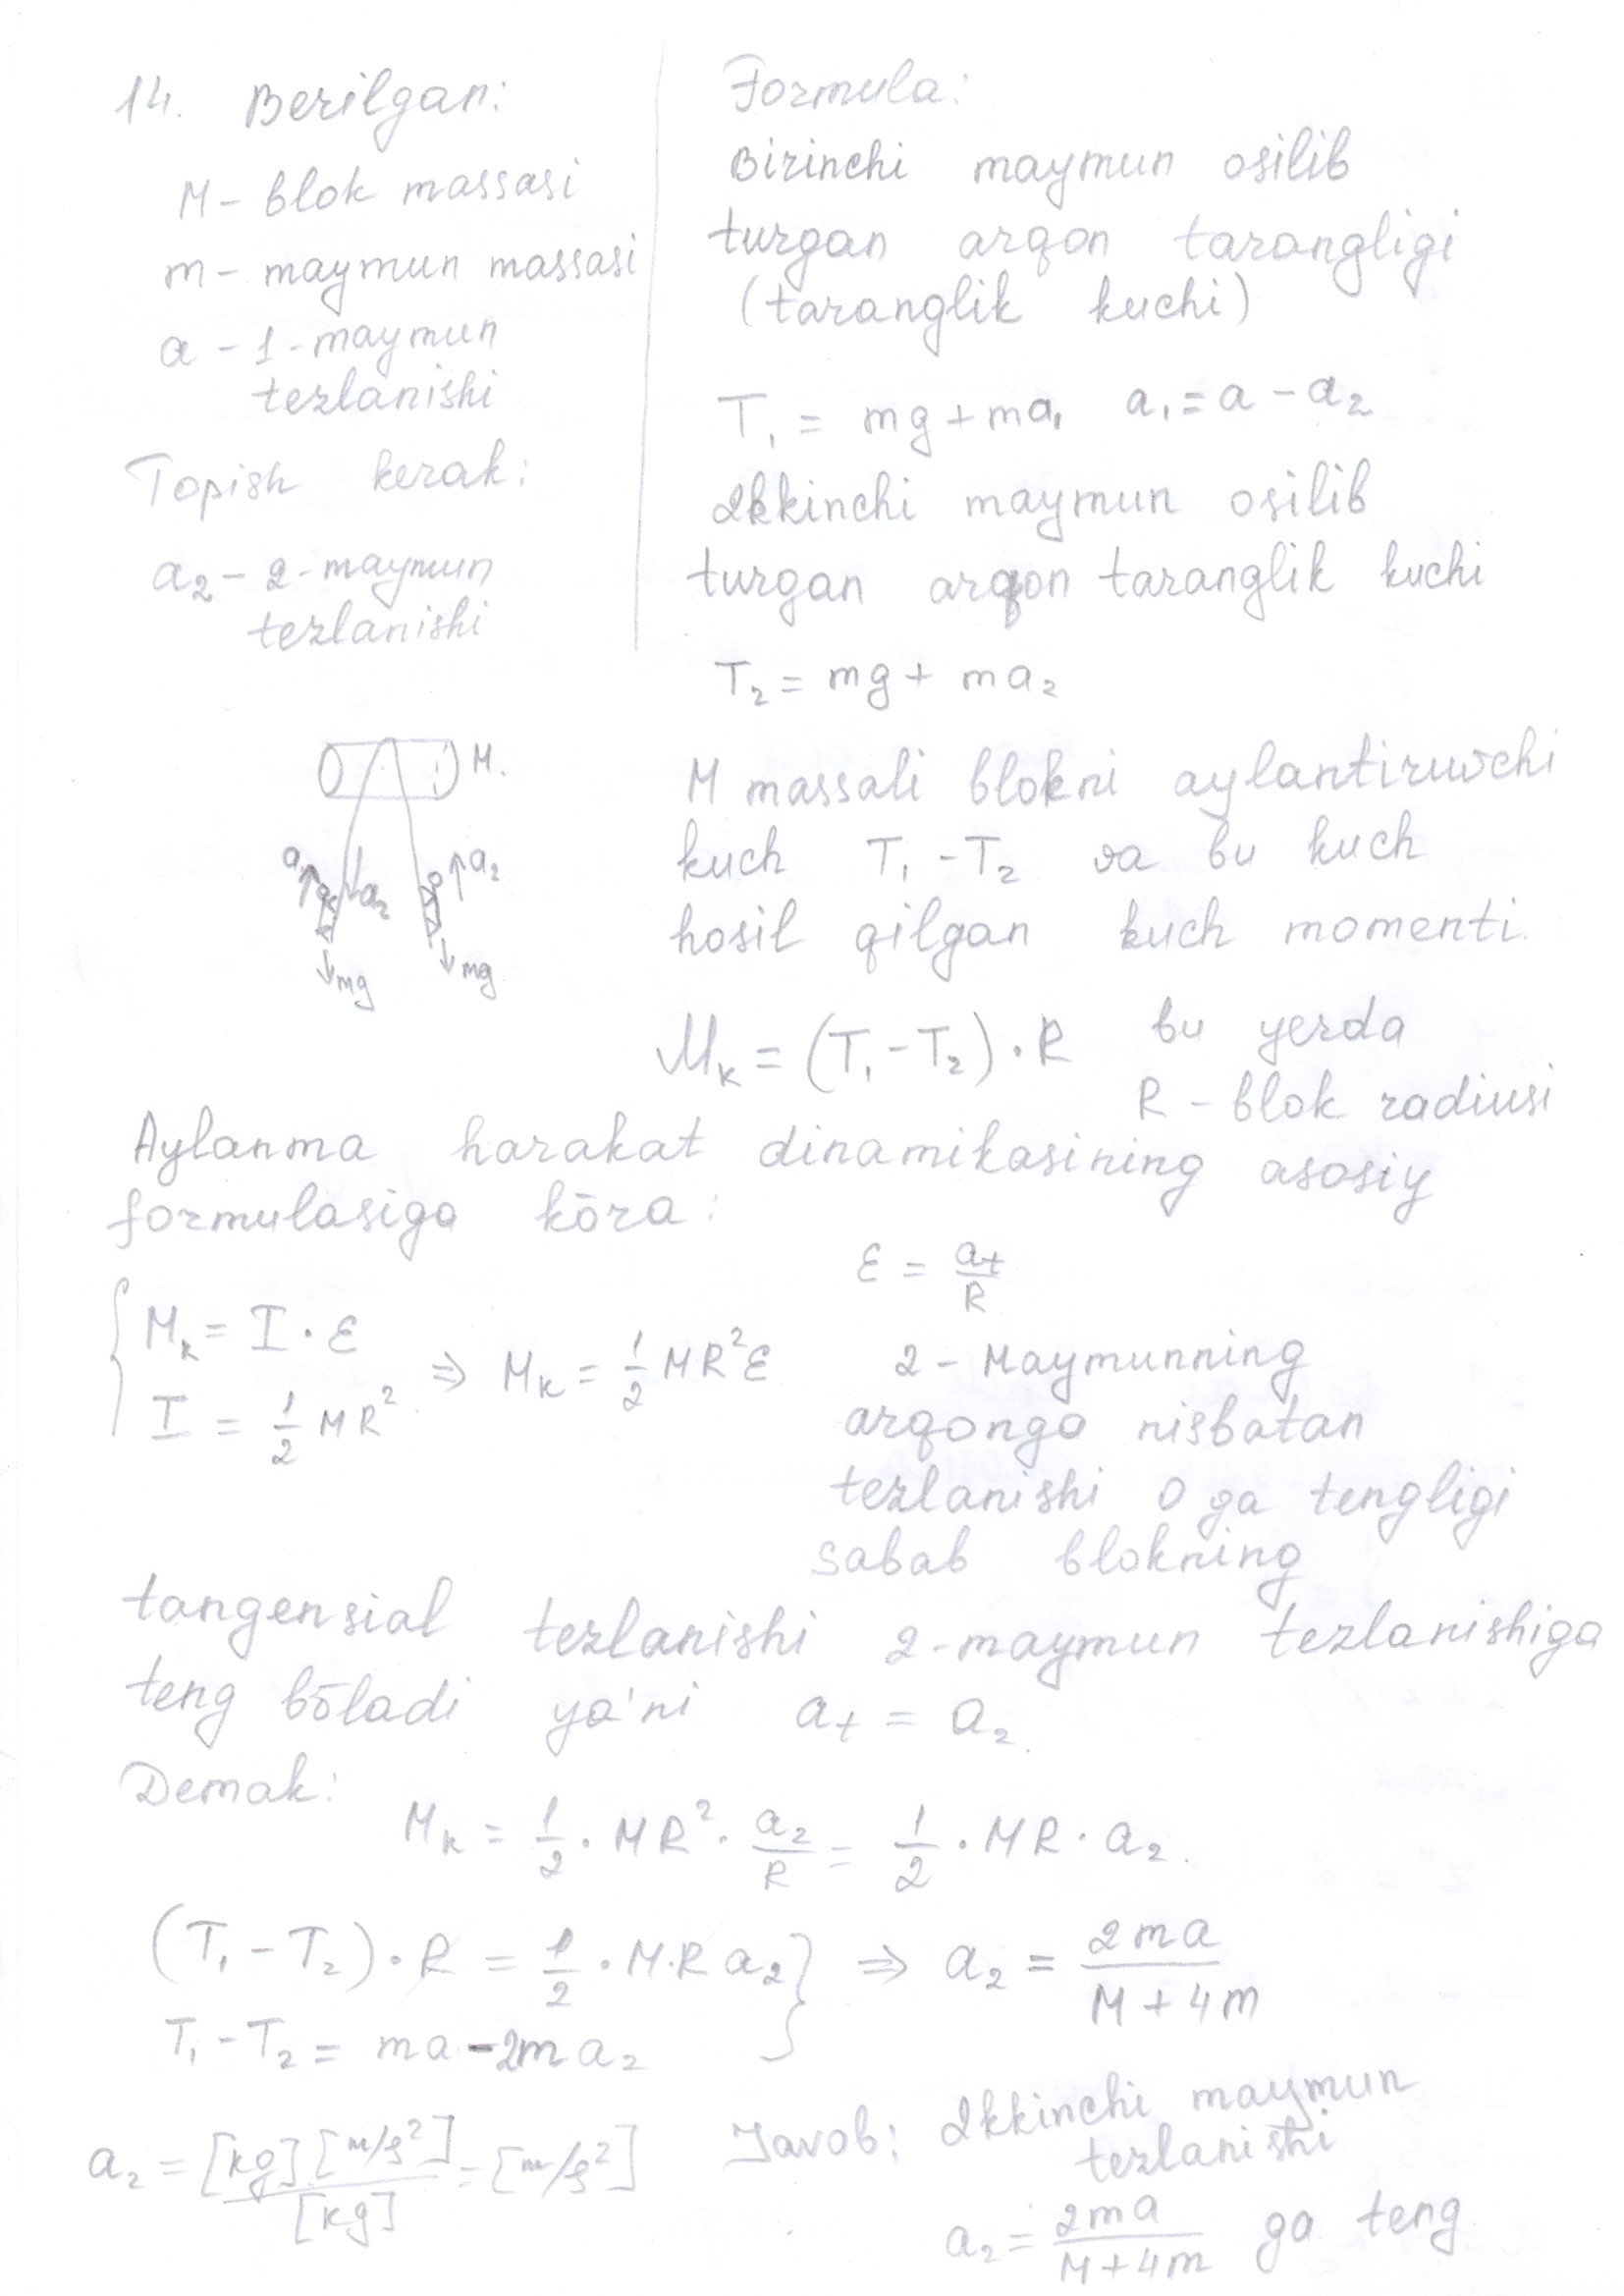 14. Berilgan:
M - blok massasi
m - maymun massasi
a - 1 - maymun
tezlanishi
Topish kerak:
a₂ - 2 - maymun
tezlanishi
Formula:
Birinchi maymun osilib
turgan arqon tarangligi
(taranglik kuchi)
T₁ = mg + ma₁ a₁ = a - a₂
Ikkinchi maymun osilib
turgan arqon taranglik kuchi
T₂ = mg + ma₂
M.
a₁ a₂ a₂
mg mg
M massali blokni aylantiruvchi
kuch T₁ - T₂ va bu kuch
hosil qilgan kuch momenti.
Mₖ = (T₁ - T₂) · R bu yerda
R - blok radiusi
Aylanma harakat dinamikasining asosiy
formulasiga kōra:
ε = aₜ/R
Mₖ = I · ε
I = 1/2 MR² ⇒ Mₖ = 1/2 MR²ε
2 - Maymunning
arqonga nisbatan
tezlanishi 0 ga tengligi
sabab blokning
tangensial tezlanishi 2-maymun tezlanishiga
teng bōladi ya'ni aₜ = a₂
Demak:
Mₖ = 1/2 · MR² · a₂/R = 1/2 · MR · a₂.
(T₁ - T₂) · R = 1/2 · M·R a₂ } ⇒ a₂ = 2ma/(M + 4m)
T₁ - T₂ = ma - 2ma₂
a₂ = [kg][m/s²]/[kg] = [m/s²]
Javob: Ikkinchi maymun
tezlanishi
a₂ = 2ma/(M + 4m) ga teng